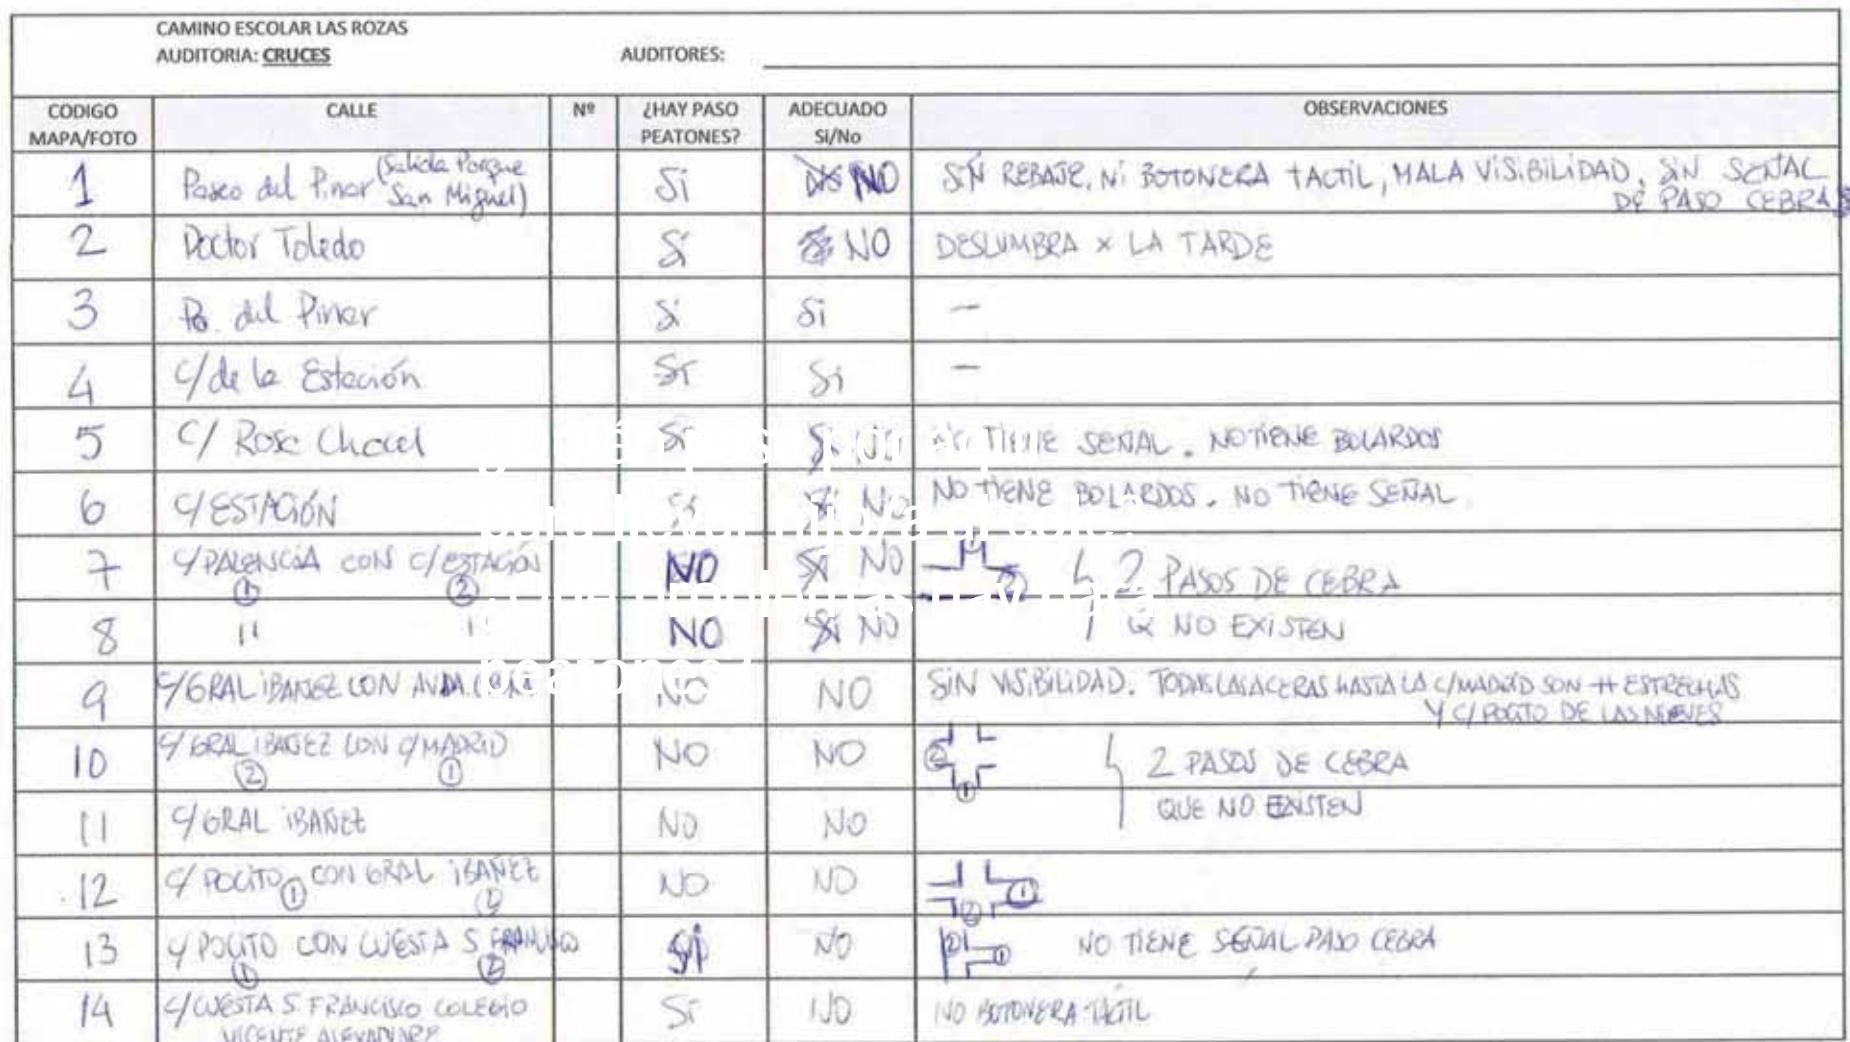 CAMINO ESCOLAR LAS ROZAS
AUDITORIA: CRUCES AUDITORES:
CODIGO MAPA/FOTO CALLE Nº ¿HAY PASO PEATONES? ADECUADO Si/No OBSERVACIONES
1 Paseo del Pinar (Salida Parque San Miguel) Si NO SIN REBAJE, NI BOTONERA TACTIL, MALA VISIBILIDAD, SIN SEÑAL DE PASO CEBRA
2 Doctor Toledo Si NO DESLUMBRA x LA TARDE
3 Po. del Pinar Si Si —
4 C/ de la Estación Si Si —
5 C/ Rosa Chacel Si Si NO NO TIENE SEÑAL. NO TIENE BOLARDOS
6 C/ ESTACIÓN Si Si NO NO TIENE BOLARDOS. NO TIENE SEÑAL
7 C/ PALENCIA CON C/ ESTACIÓN NO Si NO 2 PASOS DE CEBRA
① ② ②
8 " " NO Si NO Q NO EXISTEN
9 C/ GRAL IBAÑEZ CON AVDA. NO NO SIN VISIBILIDAD. TODAS LAS ACERAS HASTA LA C/ MADRID SON ++ ESTRECHAS
Y C/ POCITO DE LAS NIEVES
10 C/ GRAL IBAÑEZ CON C/ MADRID NO NO ② ① 2 PASOS DE CEBRA
② ①
11 C/ GRAL IBAÑEZ NO NO QUE NO EXISTEN
12 C/ POCITO ① CON GRAL IBAÑEZ ② NO NO ① ②
13 C/ POCITO CON CUESTA S. FRANCISCO SI NO ② ① NO TIENE SEÑAL PASO CEBRA
① ②
14 C/ CUESTA S. FRANCISCO COLEGIO Si NO NO BOTONERA TACTIL
VICENTE ALEXANDRE
por aquí
para llevar hijo/a al cole?
hay para
peatones?